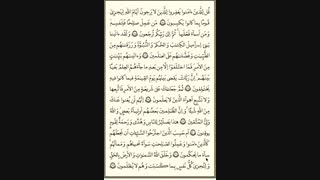 قُل لِّلَّذِينَ ءَامَنُوا۟ يَغْفِرُوا۟ لِلَّذِينَ لَا يَرْجُونَ أَيَّامَ ٱللَّهِ لِيَجْزِىَ
قَوْمًۢا بِمَا كَانُوا۟ يَكْسِبُونَ ١٤ مَنْ عَمِلَ صَٰلِحًا فَلِنَفْسِهِۦ
وَمَنْ أَسَآءَ فَعَلَيْهَا ثُمَّ إِلَىٰ رَبِّكُمْ تُرْجَعُونَ ١٥ وَلَقَدْ ءَاتَيْنَا
بَنِىٓ إِسْرَٰٓءِيلَ ٱلْكِتَٰبَ وَٱلْحُكْمَ وَٱلنُّبُوَّةَ وَرَزَقْنَٰهُم مِّنَ
ٱلطَّيِّبَٰتِ وَفَضَّلْنَٰهُمْ عَلَى ٱلْعَٰلَمِينَ ١٦ وَءَاتَيْنَٰهُم بَيِّنَٰتٍ
مِّنَ ٱلْأَمْرِ فَمَا ٱخْتَلَفُوٓا۟ إِلَّا مِنۢ بَعْدِ مَا جَآءَهُمُ ٱلْعِلْمُ بَغْيًۢا
بَيْنَهُمْ إِنَّ رَبَّكَ يَقْضِى بَيْنَهُمْ يَوْمَ ٱلْقِيَٰمَةِ فِيمَا كَانُوا۟ فِيهِ
يَخْتَلِفُونَ ١٧ ثُمَّ جَعَلْنَٰكَ عَلَىٰ شَرِيعَةٍ مِّنَ ٱلْأَمْرِ فَٱتَّبِعْهَا
وَلَا تَتَّبِعْ أَهْوَآءَ ٱلَّذِينَ لَا يَعْلَمُونَ ١٨ إِنَّهُمْ لَن يُغْنُوا۟ عَنكَ
مِنَ ٱللَّهِ شَيْـًٔا وَإِنَّ ٱلظَّٰلِمِينَ بَعْضُهُمْ أَوْلِيَآءُ بَعْضٍ وَٱللَّهُ وَلِىُّ
ٱلْمُتَّقِينَ ١٩ هَٰذَا بَصَٰٓئِرُ لِلنَّاسِ وَهُدًى وَرَحْمَةٌ لِّقَوْمٍ
يُوقِنُونَ ٢٠ أَمْ حَسِبَ ٱلَّذِينَ ٱجْتَرَحُوا۟ ٱلسَّيِّـَٔاتِ أَن نَّجْعَلَهُمْ
كَٱلَّذِينَ ءَامَنُوا۟ وَعَمِلُوا۟ ٱلصَّٰلِحَٰتِ سَوَآءً مَّحْيَاهُمْ وَمَمَاتُهُمْ
سَآءَ مَا يَحْكُمُونَ ٢١ وَخَلَقَ ٱللَّهُ ٱلسَّمَٰوَٰتِ وَٱلْأَرْضَ بِٱلْحَقِّ
وَلِتُجْزَىٰ كُلُّ نَفْسٍۭ بِمَا كَسَبَتْ وَهُمْ لَا يُظْلَمُونَ ٢٢